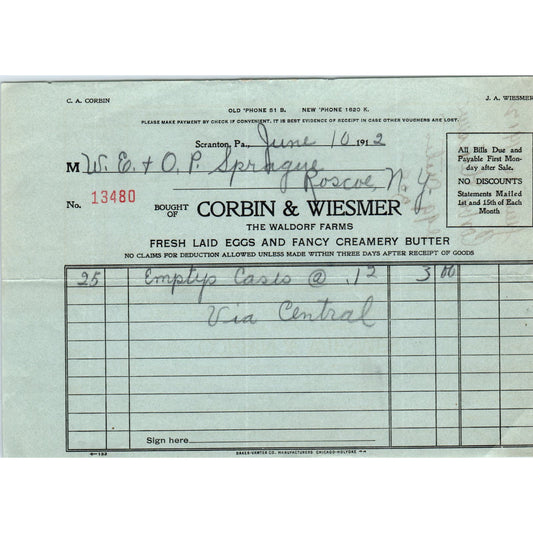 C. A. CORBIN
J. A. WIESMER
OLD 'PHONE 51 B. NEW 'PHONE 1620 K.
PLEASE MAKE PAYMENT BY CHECK IF CONVENIENT. IT IS BEST EVIDENCE OF RECEIPT IN CASE OTHER VOUCHERS ARE LOST.
Scranton, Pa., June 10 1912
M W. E. + O. P. Sprague
Roscoe, N. Y.
All Bills Due and
Payable First Mon-
day after Sale.
NO DISCOUNTS
Statements Mailed
1st and 15th of Each
Month
No. 13480
BOUGHT OF CORBIN & WIESMER
THE WALDORF FARMS
FRESH LAID EGGS AND FANCY CREAMERY BUTTER
NO CLAIMS FOR DEDUCTION ALLOWED UNLESS MADE WITHIN THREE DAYS AFTER RECEIPT OF GOODS
25 Emptys Cases @ .12 3 00
Via Central
Sign here
4-132
BAKER-VAWTER CO. MANUFACTURERS CHICAGO-HOLYOKE